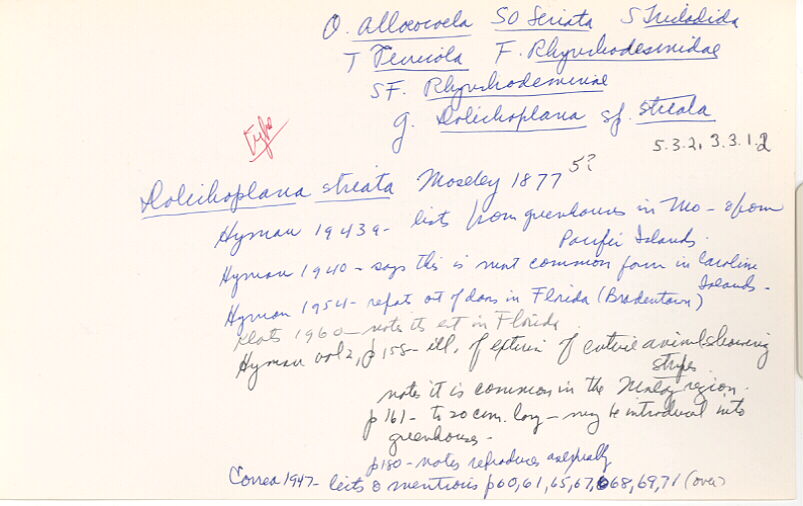 O. Alloeocoela SO Seriata S Tricladida
T Terricola F. Rhynchodesmidae
SF. Rhynchodesminae
g. Dolichoplana sp. striata
5.3.2.3.3.1.2
Type
Dolichoplana striata Moseley 1877 5?
Hyman 1943a- lists from greenhouses in Mo - & from
Pacific Islands.
Hyman 1940 - says this is most common form in Caroline
Islands -
Hyman 1954 - repots out of doors in Florida (Bradentown)
1960 - notes its ext in Florida
Hyman vol 2, p 158 - ill. of exterior of entire animal showing
stripes.
notes it is common in the Malay region.
p 161 - to 20 cm. long - may be introduced into
greenhouses -
p180 - notes reproduces asexually
Correa 1947 - lists & mentions p60, 61, 65, 67, 68, 69, 71 (over)